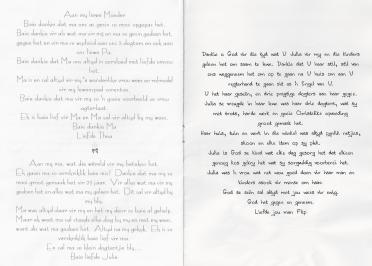 Aan my liewe Moeder
Baie dankie dat ma ons as gesin so mooi opgepas het.
Baie dankie vir als wat ma vir my en ma se gesin gedoen het,
Baie dankie dat Ma ons altyd in
het.
Ma is en sal altyd vir my 'n wonderlike vrou wees en
vir my lewenspad
Baie dankie dat ma vir my so 'n goeie voorbeeld as vrou
nagelaat.
Ek is baie lief vir Ma en Ma sal altyd by my wees.
Baie dankie Ma
Liefde Thea
Aan my ma, wat die wêreld vir my beteken het.
Ek gaan ma so verskriklik baie mis! Dankie dat ma my so
mooi groot gemaak het vir 23 jaar. Vir alles wat ma vir my
gedoen het en alles wat ma my geleer het. Dit sal vir altyd by
my bly.
Ma was altyd daar vir my en het my deur so baie al gehelp.
Maar ek weet ma sal steeds elke dag by my en met my wees,
want dis wat ma gedoen het. Altyd na my gekyk. Ek is so
verskriklik baie lief vir ma.
En sal ma so klein dogtertjie bly....
Baie liefde Julia
Dankie o God vir die tyd wat U Julia vir my en die kinders
geleen het om saam te lewe. Dankie dat U haar stil, stil van
ons weggeneem het om op te gaan na U huis om aan U
regterhand te gaan sit as 'n Engel van U.
U het haar geseën, en drie pragtige dogters aan haar gegee.
Julia se vreugde in haar lewe was haar drie dogters, wat sy
met trots, harde werk en goeie Christelike opvoeding
groot gemaak het.
Haar huis, tuin en werk in die winkel was altyd synde netjies,
skoon en elke item op sy plek.
Julia is God se kind wat elke dag gesorg het dat elkeen
genoeg kos gekry het wat sy sorgvuldig voorberei het.
Julia was 'n vrou wat net wou goed doen vir haar man en
kinders asook vir mense om haar.
God se seën sal altyd met jou wees my engel.
God het gegee en geneem.
Liefde jou man Flip